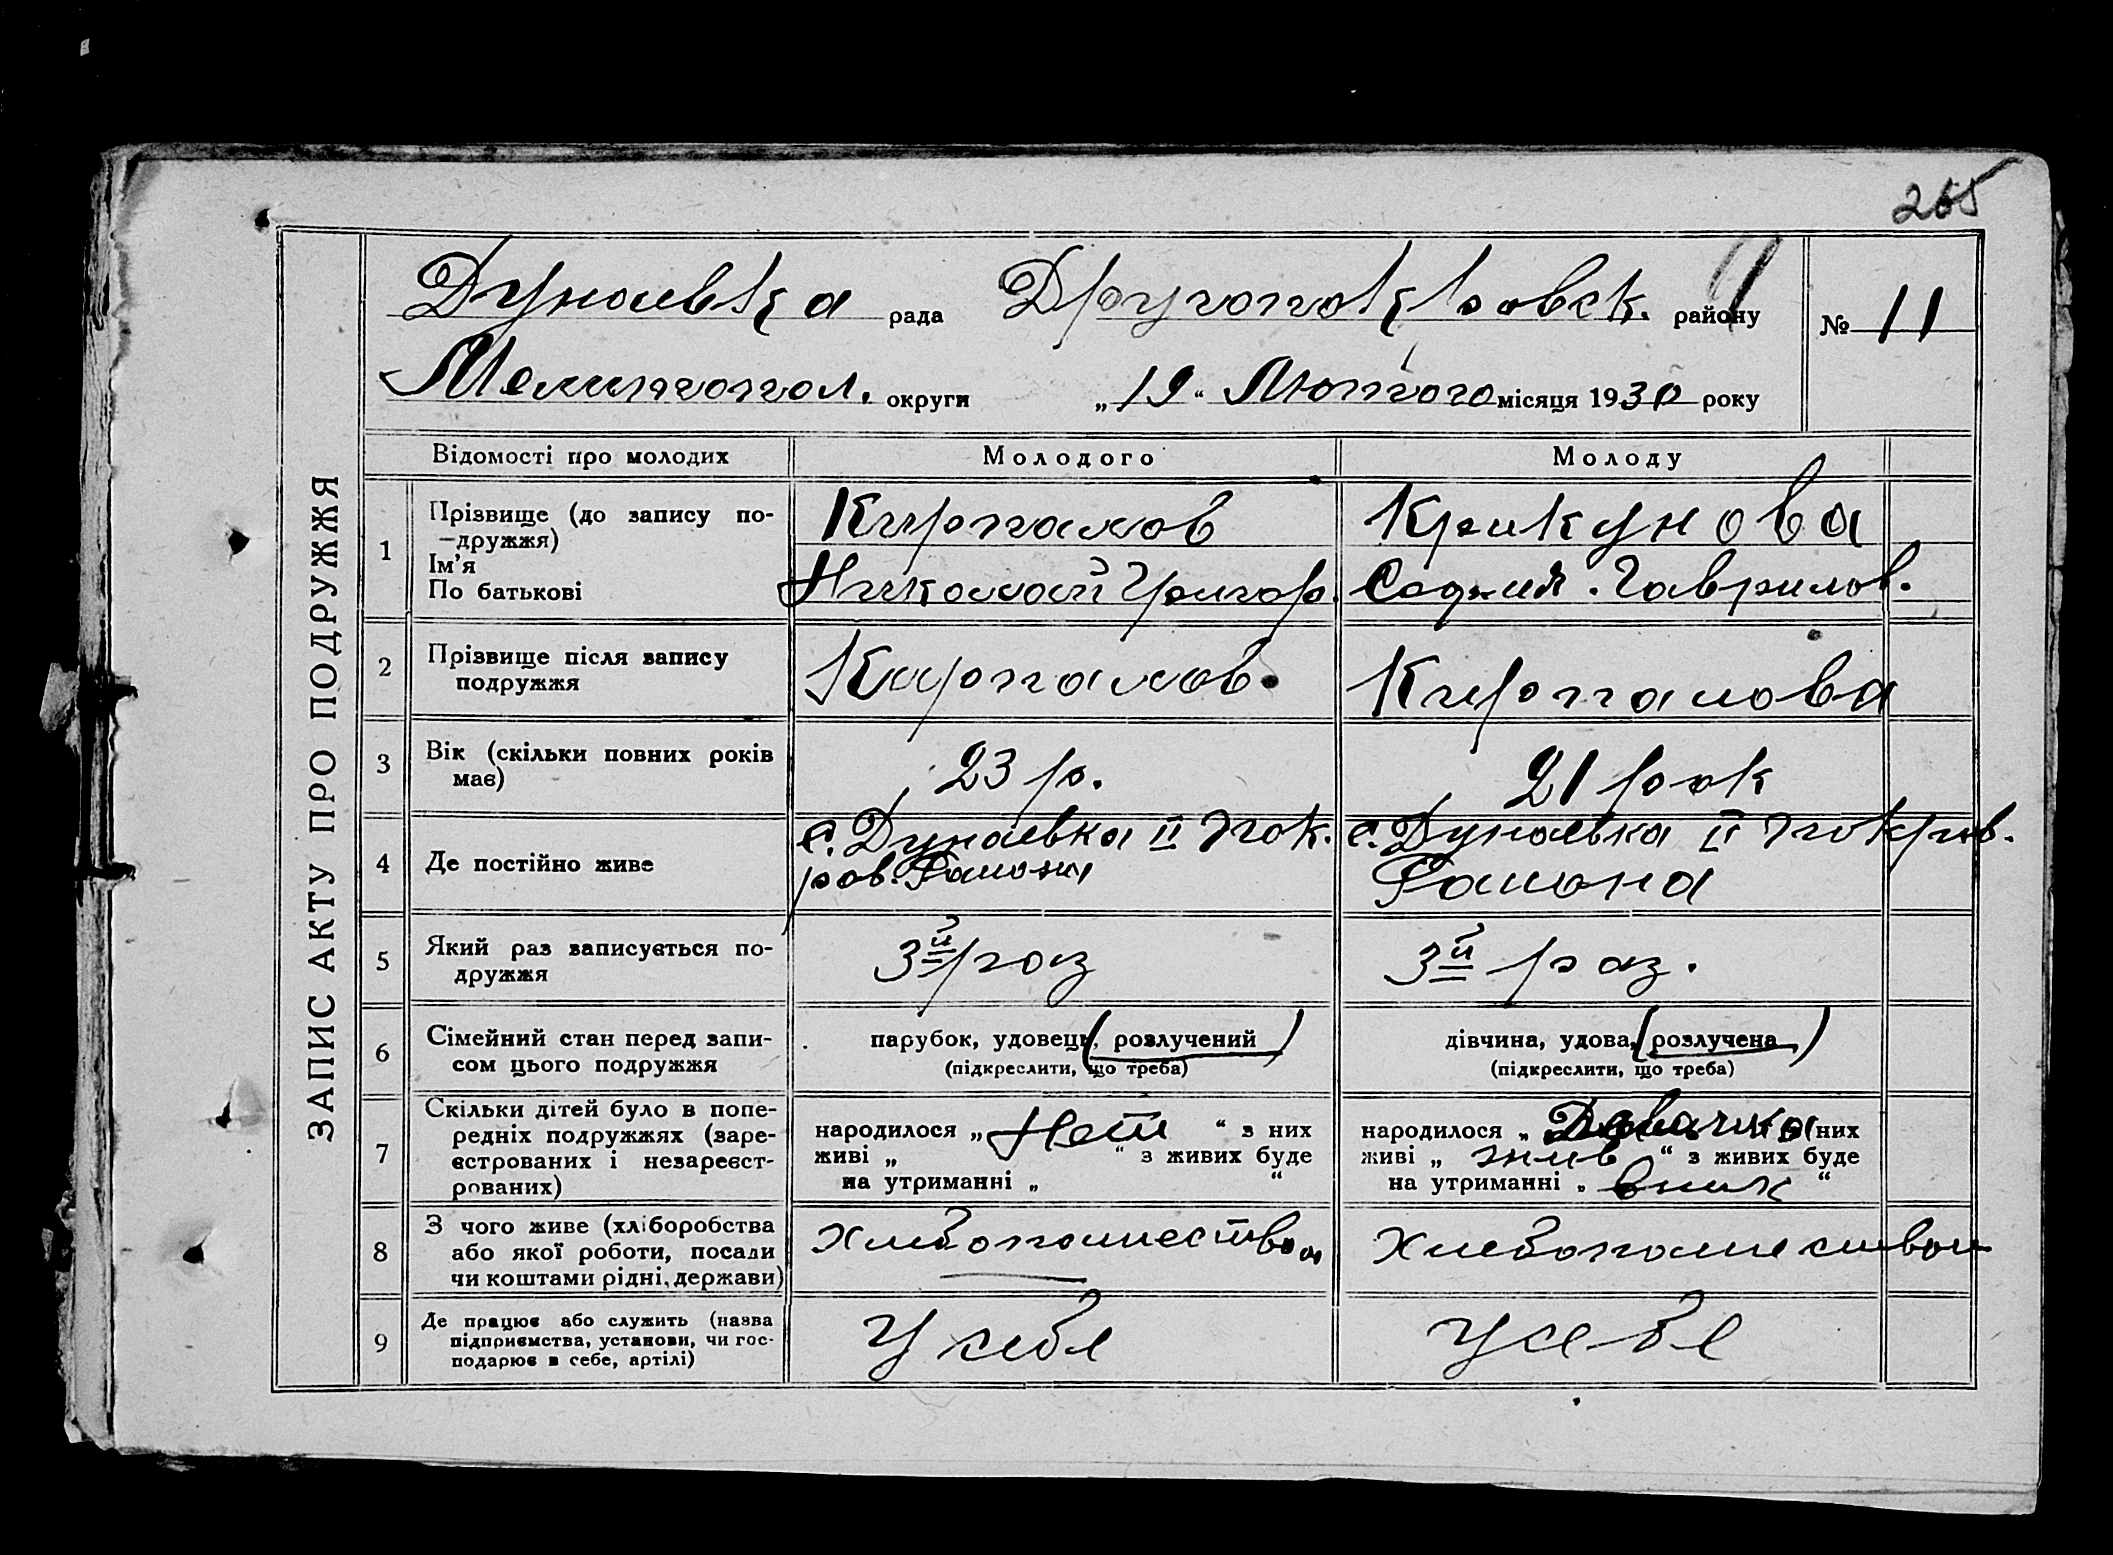 265
Дунаевка рада Другопокровск. району № 11
Мелитопол. округи „19“ Лютого місяця 1930 року
ЗАПИС АКТУ ПРО ПОДРУЖЖЯ
Відомості про молодих Молодого Молоду
1 Прізвище (до запису по-
-дружжя)
Ім'я
По батькові
Кирпалов
Николай Григор.
Крикунова
Гаврилов.
2 Прізвище після запису
подружжя
Кирпалов.
Кирпалова
3 Вік (скільки повних років
має)
23 р.
21 рок
4 Де постійно живе
с. Дунаевка II Пок.
ров. Района
с. Дунаевка II Покров.
Района
5 Який раз записується по-
дружжя
3й раз
3й раз.
6 Сімейний стан перед запи-
сом цього подружжя
парубок, удовець, розлучений
(підкреслити, що треба)
дівчина, удова, розлучена
(підкреслити, що треба)
7 Скільки дітей було в попе-
редніх подружжях (заре-
єстрованих і незареєст-
рованих)
народилося „ Нет “ з них
живі „ “ з живих буде
на утриманні „ “
народилося „ них
живі „ “ з живих буде
на утриманні „ “
8 З чого живе (хліборобства
або якої роботи, посади
чи коштами рідні, держави)
9 Де працює або служить (назва
підприємства, установи, чи гос-
подарює в себе, артілі)
У себе
У себе